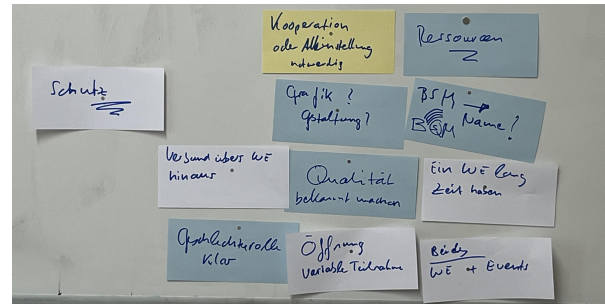 Kooperation
oder Alleinstellung
notwendig
Ressourcen
Schutz
Grafik?
Gstaltung?
BSM →
Name?
über WE
hinaus
Qualität
bekannt machen
Ein WE lang
Zeit haben
Geschlechterrolle
klar
Öffnung
variable Teilnahme
Beides
WE + Events